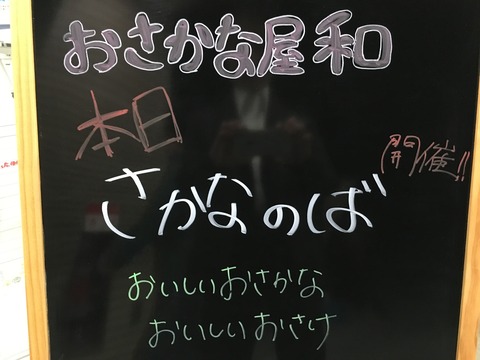 おさかな屋 和
本日
さかなのば
開催!!
おいしいおさかな
おいしいおさけ